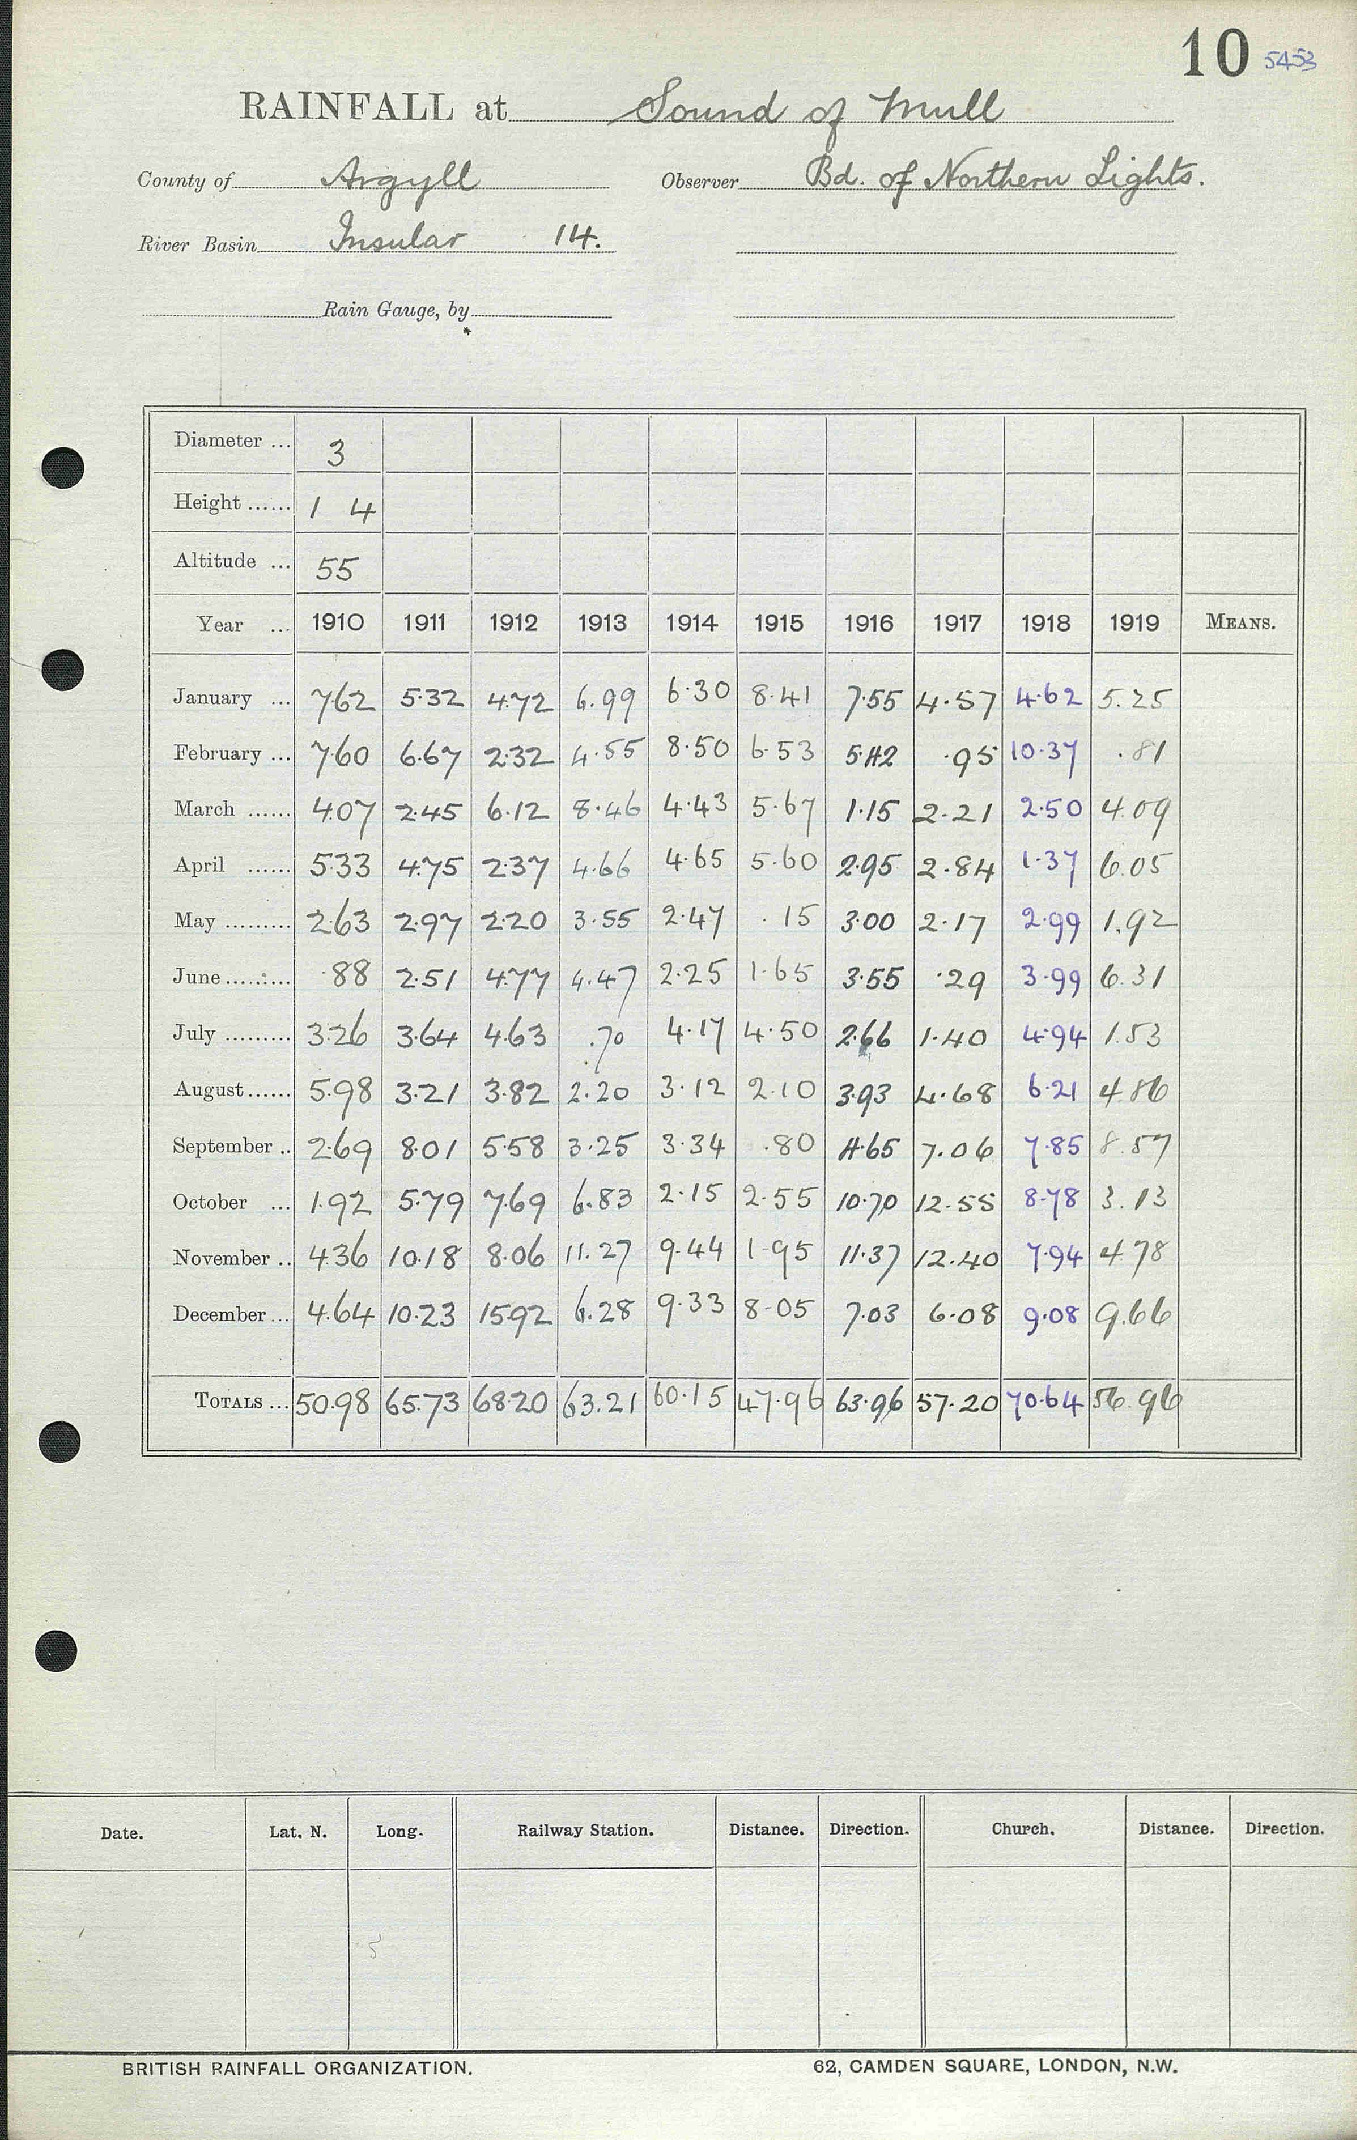 10 5453
RAINFALL at Sound of Mull
County of Argyll Observer Bd. of Northern Lights.
River Basin Insular 14.
Rain Gauge, by
Diameter ... 3
Height ...... 1 4
Altitude ... 55
Year ... 1910 1911 1912 1913 1914 1915 1916 1917 1918 1919 MEANS.
January ... 7.62 5.32 4.72 6.99 6.30 8.41 7.55 4.57 4.62 5.25
February ... 7.60 6.67 2.32 4.55 8.50 6.53 5.42 .95 10.37 .81
March ...... 4.07 2.45 6.12 8.46 4.43 5.67 1.15 2.21 2.50 4.09
April ...... 5.33 4.75 2.37 4.66 4.65 5.60 2.95 2.84 1.37 6.05
May ......... 2.63 2.97 2.20 3.55 2.47 .15 3.00 2.17 2.99 1.92
June ......... .88 2.51 4.77 4.47 2.25 1.65 3.55 .29 3.99 6.31
July ......... 3.26 3.64 4.63 .70 4.17 4.50 2.66 1.40 4.94 1.53
August ...... 5.98 3.21 3.82 2.20 3.12 2.10 3.93 4.68 6.21 4.86
September .. 2.69 8.01 5.58 3.25 3.34 .80 4.65 7.06 7.85 8.57
October ... 1.92 5.79 7.69 6.83 2.15 2.55 10.70 12.55 8.78 3.13
November .. 4.36 10.18 8.06 11.27 9.44 1.95 11.37 12.40 7.94 4.78
December ... 4.64 10.23 15.92 6.28 9.33 8.05 7.03 6.08 9.08 9.66
TOTALS ... 50.98 65.73 68.20 63.21 60.15 47.96 63.96 57.20 70.64 56.96
Date. Lat. N. Long. Railway Station. Distance. Direction. Church. Distance. Direction.
5
BRITISH RAINFALL ORGANIZATION. 62, CAMDEN SQUARE, LONDON, N.W.